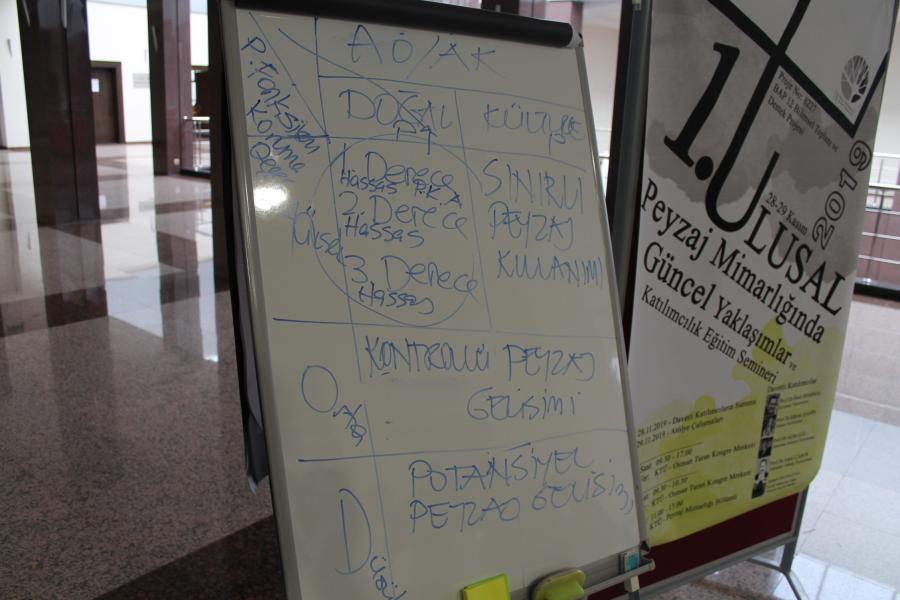 AÖ/AK
P. Fonksiyon
Koruma
Değ.
DOĞAL
KÜLTÜREL
1. Derece
Hassas
2. Derece
Hassas
3. Derece
Hassas
Yüksek
SINIRLI
PEYZAJ
KULLANIMI
KONTROLLÜ PEYZAJ
GELİŞİMİ
Orta
POTANSİYEL
PEYZAJ GELİŞİMİ
Düşük
Proje No: 8227
BAP 12 Bilimsel Toplantı ve
Destek Projesi
1. ULUSAL
28-29 Kasım
2019
Peyzaj Mimarlığında
Güncel Yaklaşımlar ve
Katılımcılık Eğitim Semineri
Davetli Katılımcılar
28.11.2019 - Davetli Katılımcıların Sunumu
29.11.2019 - Atölye Çalışmaları
09.30 - 17.00
KTÜ - Osman Turan Kongre Merkezi
09.30 - 10.30
KTÜ - Osman Turan Kongre Merkezi
11.00 - 17.00
KTÜ - Peyzaj Mimarlığı Bölümü